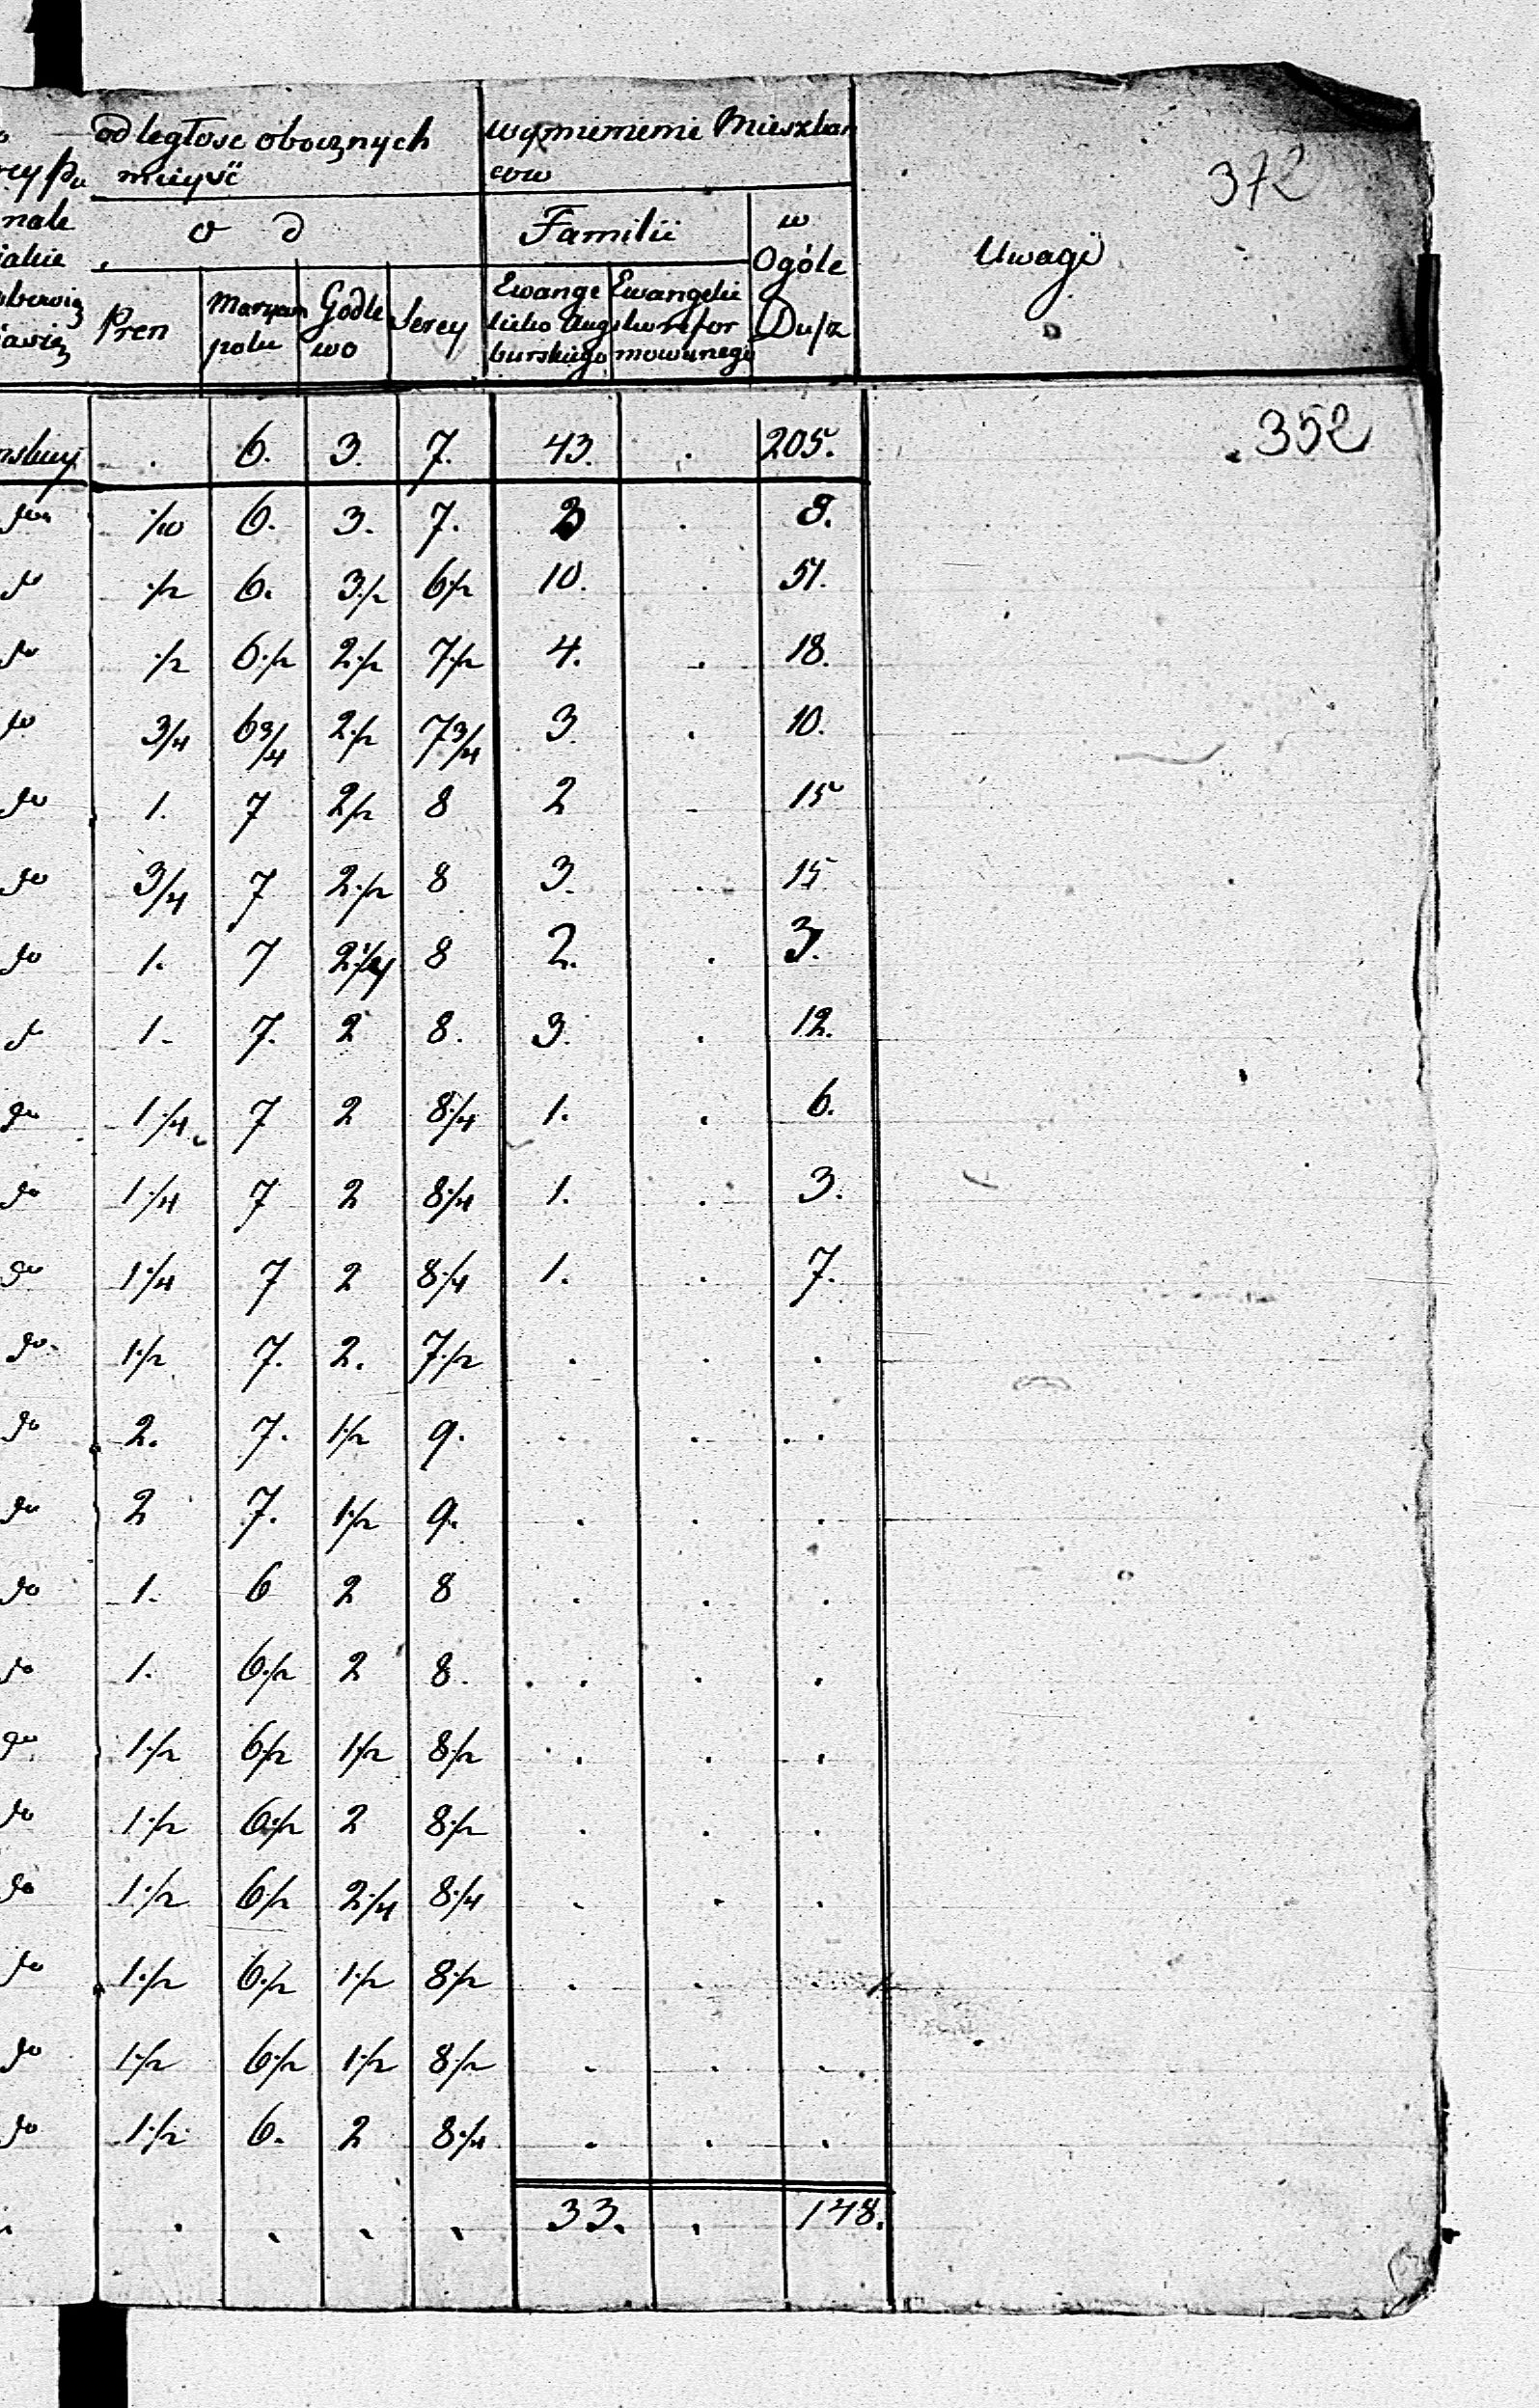 odległosc obocznych wymienienie Mieszkan
mieysc cow
372
nale o d Familii w
Ogóle
Dusz
Uwagi
Pren Maryam Godle Serey Ewange Ewangelic
polu wo licko Aug ko refor
burskiego mowanego
. 6. 3. 7. 43. . 205. 352
1/10 6. 3. 7. . 
do 1/2 6. 3 1/2 6 1/2 10. . 51.
do 1/2 6 1/2 2 1/2 7 1/2 4. . 18.
do 3/4 6 3/4 2 1/2 7 3/4 3. . 10.
do 1. 7 2 1/2 8 2 . 15
do 3/4 7 2 1/2 8 3. . 15
do 1. 7 2 1/4 8 2. . 3.
do 1. 7. 2 8. 3. . 12.
do 1 1/4 7 2 8 1/4 1. . 6.
do 1 1/4 7 2 8 1/4 1. . 3.
do 1 1/4 7 2 8 1/4 1. . 7.
do 1 1/2 7. 2. 7 1/2 . . .
do 2. 7. 1 1/2 9. . . .
do 2 7. 1 1/2 9. . . .
do 1. 6 2 8 . . .
do 1. 6 1/2 2 8. . . .
do 1 1/2 6 1/2 1 1/2 8 1/2 . . .
do 1 1/2 6 1/2 2 8 1/2 . . .
do 1 1/2 6 1/2 2 1/4 8 1/4 . . .
do 1 1/2 6 1/2 1 1/2 8 1/2 . . .
do 1 1/2 6 1/2 1 1/2 8 1/2 . . .
do 1 1/2 6. 2 8 1/4 . . .
. . . . . 33. . 148.